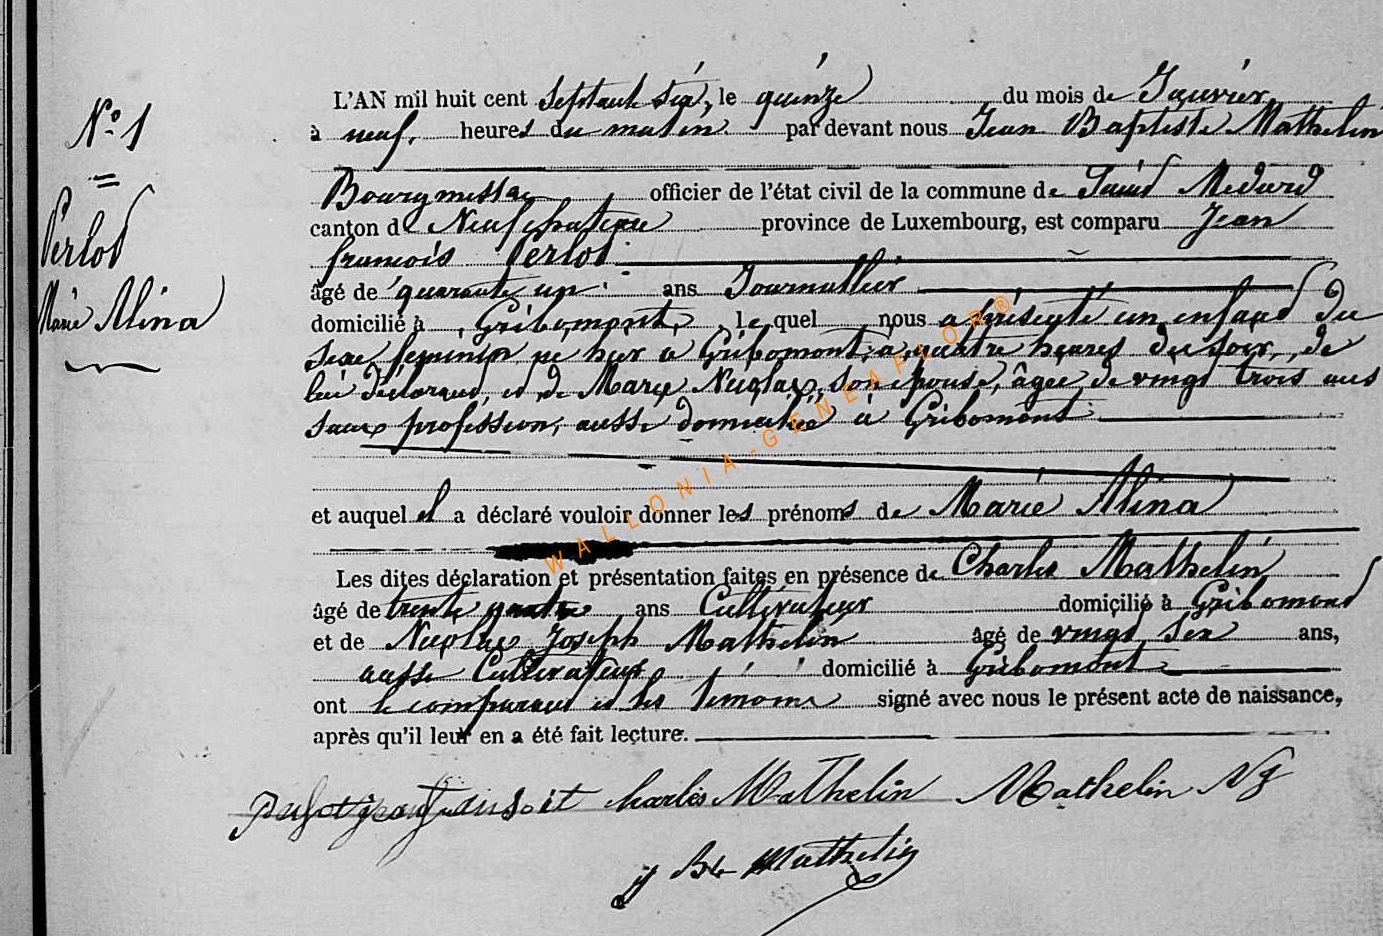 N° 1
Perlot
Marie Alina
L'AN mil huit cent septante six, le quinze du mois de Janvier
à neuf heures du matin par devant nous Jean Baptiste Mathelin
Bourgmestre officier de l'état civil de la commune de Saint Medard
canton de Neufchateau province de Luxembourg, est comparu Jean
francois Perlot
âgé de quarante un ans Journallier
domicilié à Gribomont, le quel nous a présenté un enfant du
sexe féminin né hier a Gribomont, a quatre heures du soir, de
lui déclarant, et de Marie Nicolas, son épouse, âgée de vingt trois ans
sans profession, aussi domiciliée à Gribomont
et auquel il a déclaré vouloir donner les prénoms de Marie Alina
Les dites déclaration et présentation faites en présence de Charles Mathelin
âgé de trente quatre ans Cultivateur domicilié à Gribomont
et de Nicolas Joseph Mathelin âgé de vingt six ans,
aussi Cultivateur domicilié à Gribomont
ont le comparant et les témoins signé avec nous le présent acte de naissance,
après qu'il leur en a été fait lecture.
charles Mathelin Mathelin NJ
J Bte Mathelin
WALLONIA-GENEAFLOR®